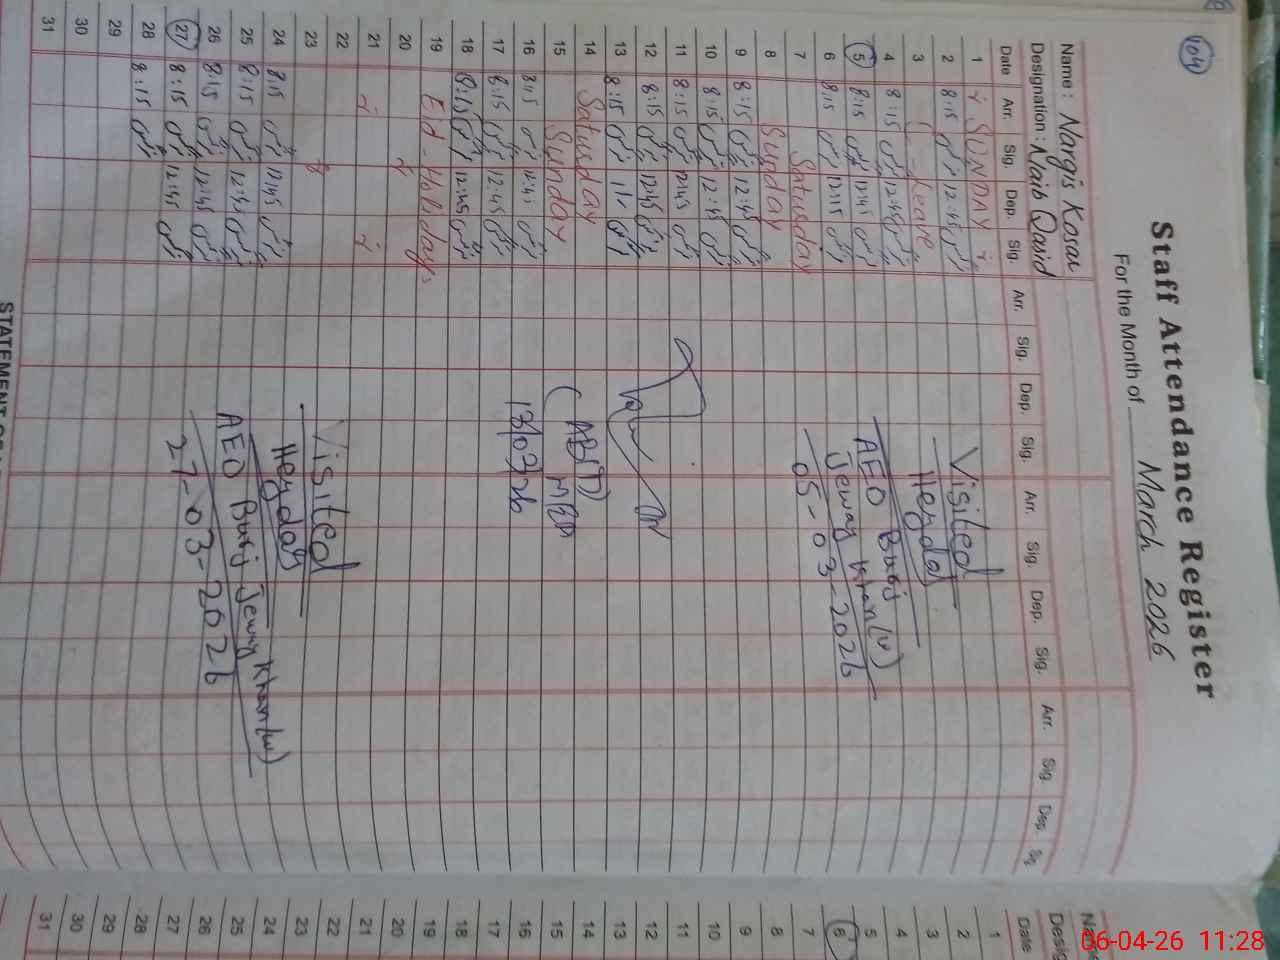 104
Staff Attendance Register
For the Month of March 2026
Name: Nargis Kosar
Designation: Naib Qasid
Date Arr. Sig. Dep. Sig. Arr. Sig. Dep. Sig. Arr. Sig. Dep. Sig. Arr. Sig. Dep. Sig
1 SUNDAY
2 8:15 12:45
3 Leave
4 8:15 12:45
5 8:15 12:45
6 8:15 12:15
7 Saturday
8 Sunday
9 8:15 12:45
10 8:15 12:45
11 8:15 12:45
12 8:15 12:45
13 8:15
14 Saturday
15 Sunday
16 8:15 12:45
17 8:15 12:45
18 8:15 12:45
19 Eid-Holidays
20
21
22
23
24 8:15 12:45
25 8:15 12:45
26 8:15 12:45
27 8:15 12:45
28 8:15
29
30
31
Visited
AEO Burj
Jeway Khan(w)
05-03-2026
13/03/26
Visited
AEO Burj Jeway Khan(w)
27-03-2026
STATEMENT
Date
1
2
3
4
5
6
7
8
9
10
11
12
13
14
15
16
17
18
19
20
21
22
23
24
25
26
27
28
29
30
31
06-04-26 11:28